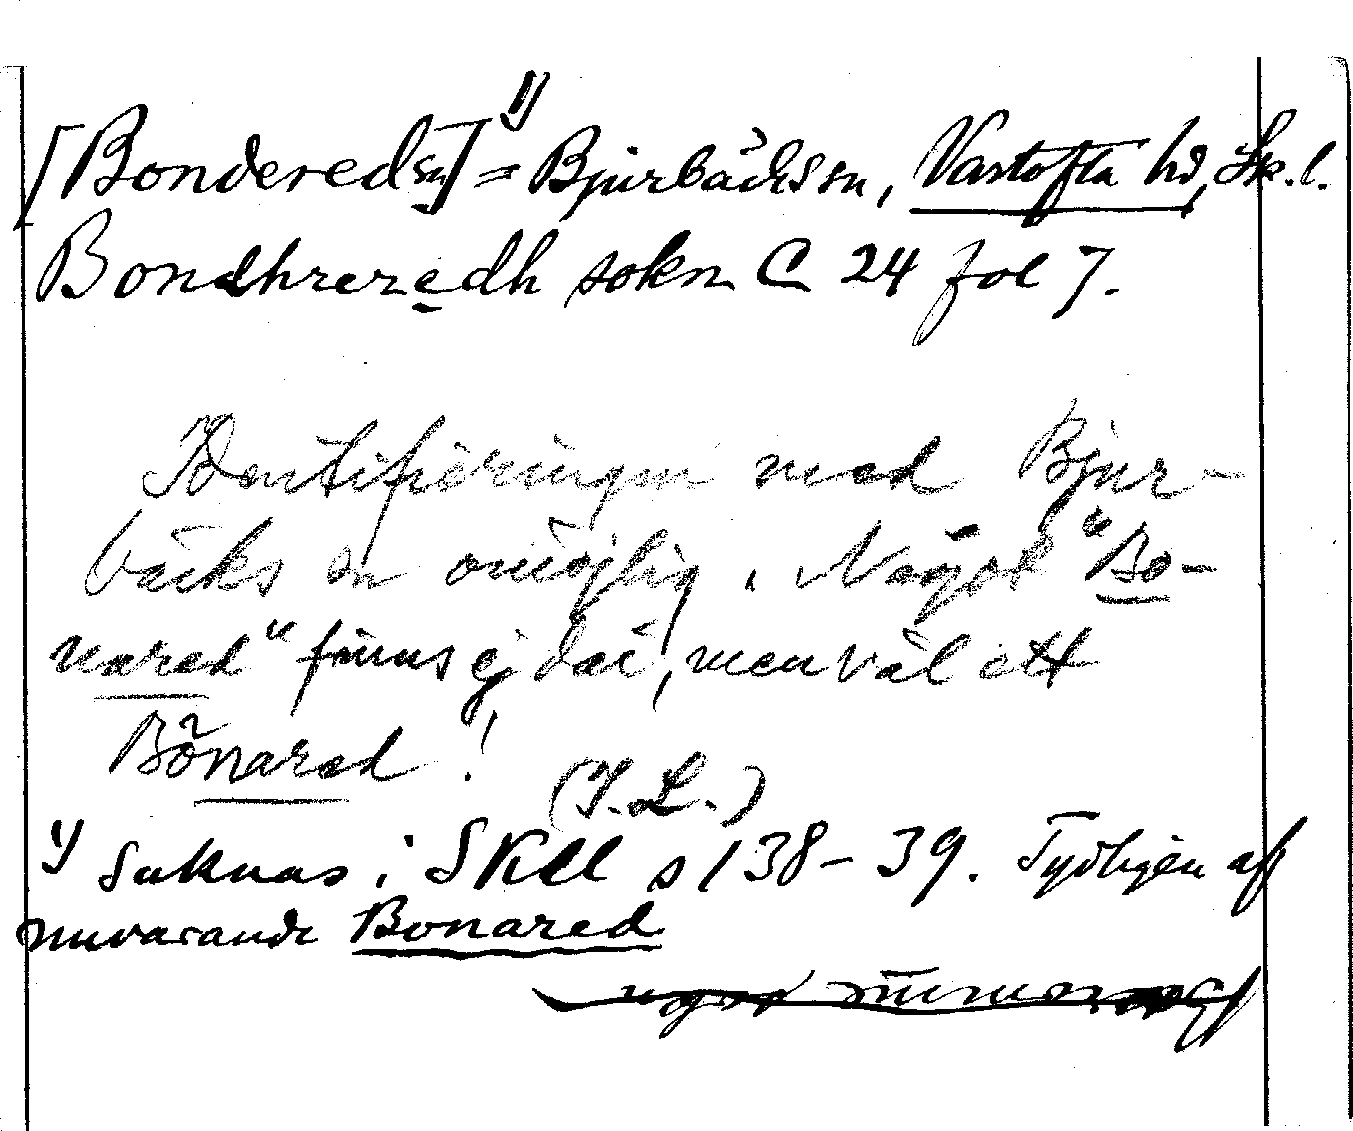 [Bondered sn]¹⁾ = Bjurbäcks sn, Vartofta hd, Sk. l.
Bondhreredh sokn C 24 fol 7.
Identifieringen med Bjur-
bäcks sn omöjlig. Något "Bo-
nared" finns ej där, men väl ett
Bönared!
(I. L.)
¹⁾ Saknas i SKLL s 138-39. Tydligen af
nuvarande Bonared